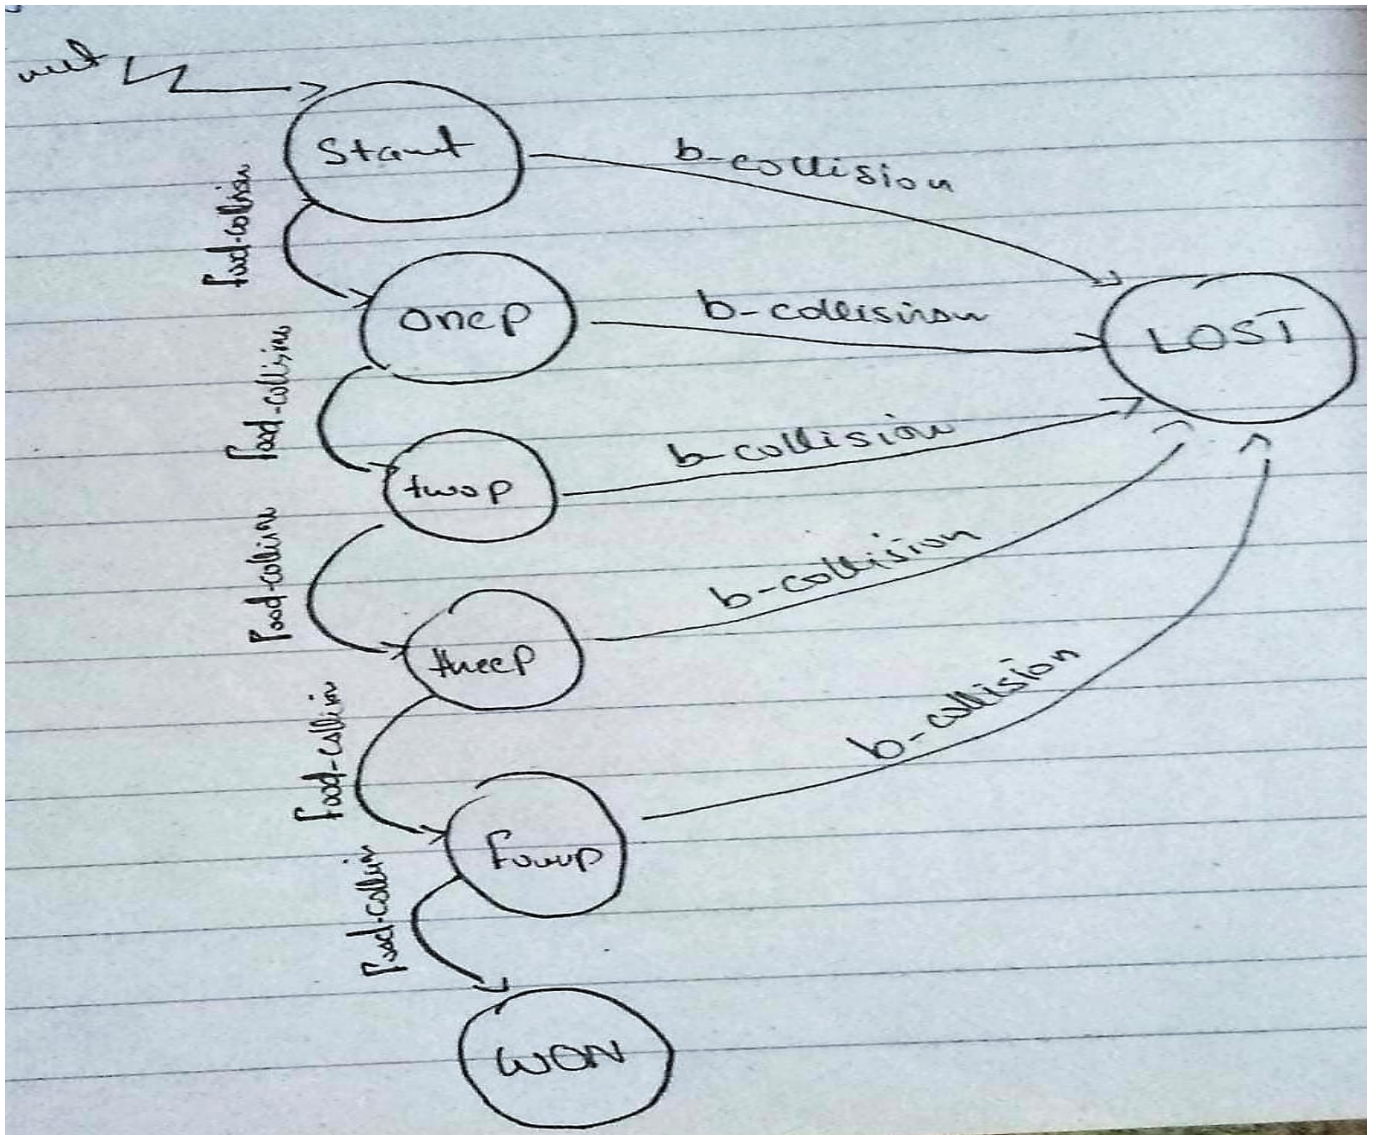 Start
b-collision
food-collision
onep
b-collision
LOST
food-collision
twop
b-collision
food-collision
threep
b-collision
food-collision
fourp
b-collision
food-collision
WON